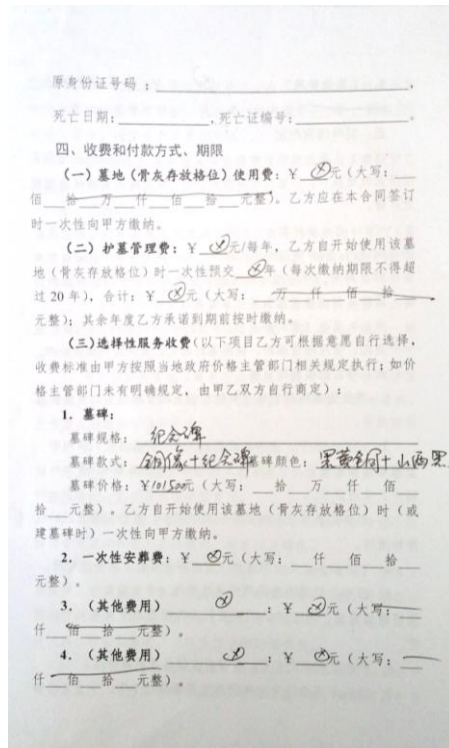 原身份证号码：____________________，
死亡日期：____________，死亡证编号：____________。
四、收费和付款方式、期限
（一）墓地（骨灰存放格位）使用费：￥__⊗元（大写：__
佰__拾__万__仟__佰__拾__元整）。乙方应在本合同签订
时一次性向甲方缴纳。
（二）护墓管理费：￥__⊗元/每年，乙方自开始使用该墓
地（骨灰存放格位）时一次性预交__⊗年（每次缴纳期限不得超
过20年），合计：￥__⊗元（大写：__万__仟__佰__拾__
元整）；其余年度乙方承诺到期前按时缴纳。
（三）选择性服务收费（以下项目乙方可根据意愿自行选择，
收费标准由甲方按照当地政府价格主管部门相关规定执行；如价
格主管部门未有明确规定，由甲乙双方自行商定）：
1．墓碑：
墓碑规格：纪念碑
墓碑款式：铜像+纪念碑墓碑颜色：黑黄铜+山西黑
墓碑价格：￥101500元（大写：__拾__万__仟__佰__
拾__元整）。乙方自开始使用该墓地（骨灰存放格位）时（或
建墓碑时）一次性向甲方缴纳。
2．一次性安葬费：￥__⊗元（大写：__仟__佰__拾__
元整）。
3．（其他费用）____⊗____：￥__⊗元（大写：__
仟__佰__拾__元整）。
4．（其他费用）____⊗____：￥__⊗元（大写：__
仟__佰__拾__元整）。